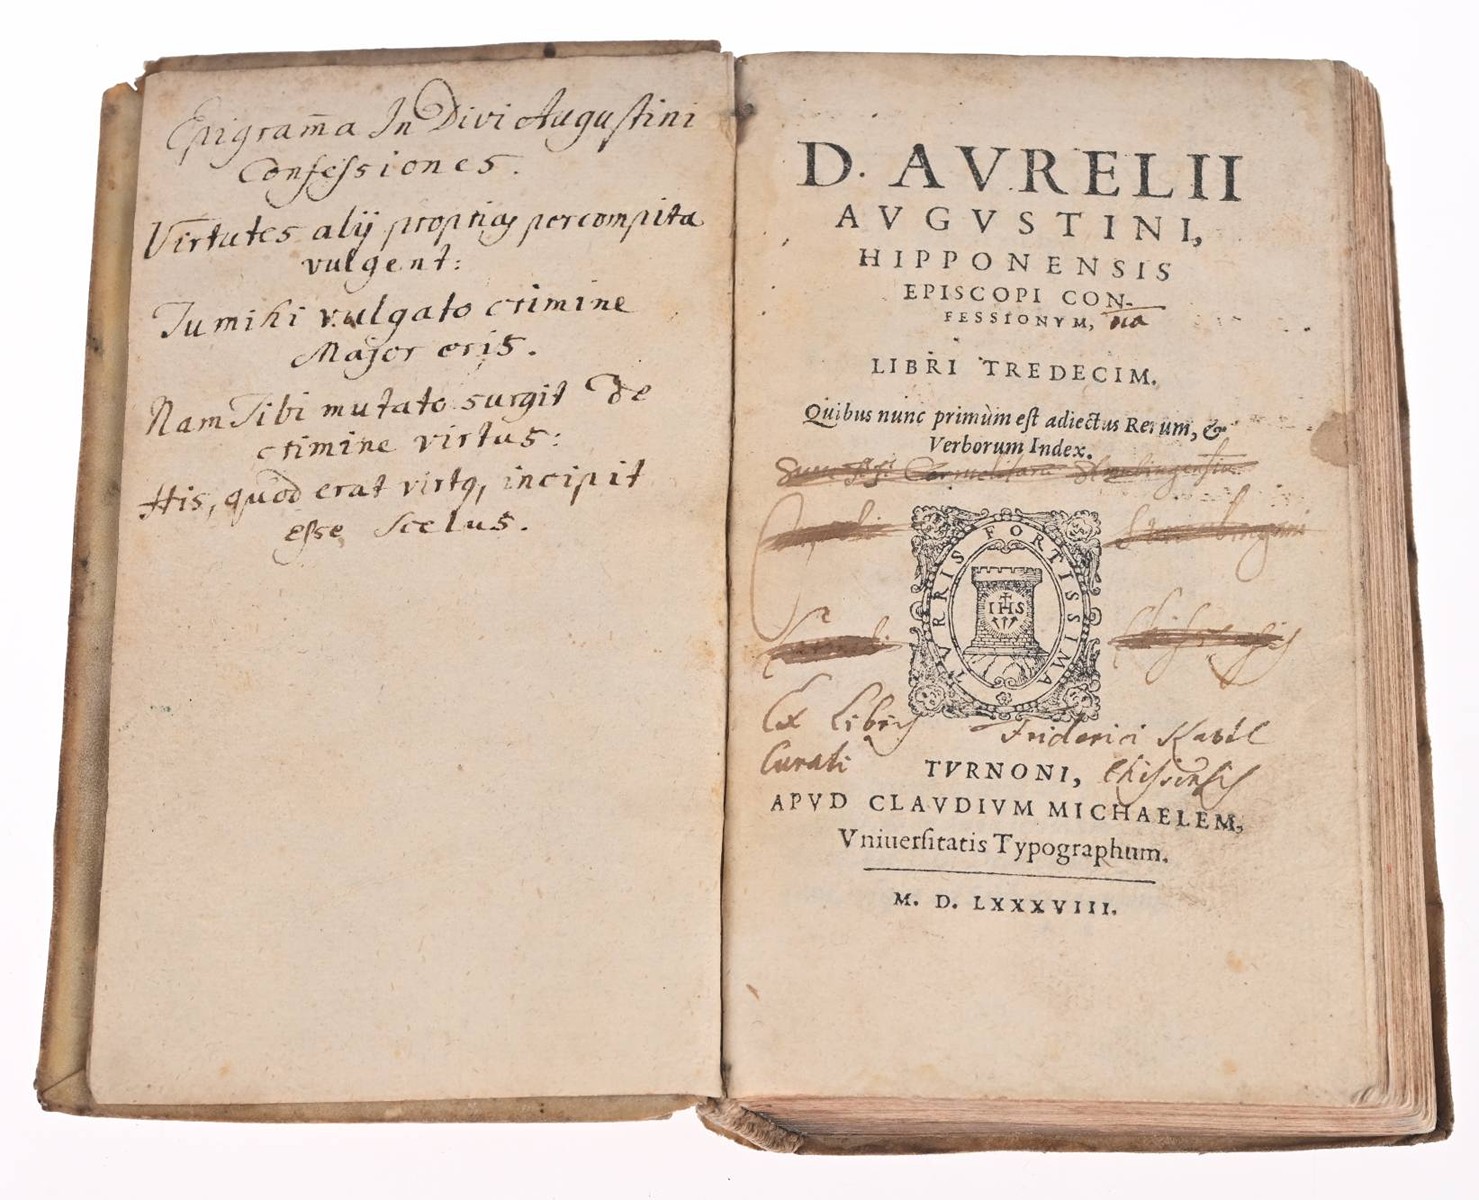 Epigram̄a In Divi Augustini
Confessiones.
Virtutes alij proprias per compita
vulgent:
Tu mihi vulgato crimine
Major eris.
Nam Tibi mutato surgit De
crimine virtus:
His, quod erat virtq, incipit
esse scelus.
D. AVRELII
AVGVSTINI,
HIPPONENSIS
EPISCOPI CON-
FESSIONVM,
LIBRI TREDECIM.
Quibus nunc primùm est adiectus Rerum, &
Verborum Index.
Carmelitarū Straubingensiū
TVRRIS FORTISSIMA
IHS
Ex Libris Friderici
Curati
TVRNONI,
APVD CLAVDIVM MICHAELEM,
Vniuersitatis Typographum.
M. D. LXXXVIII.